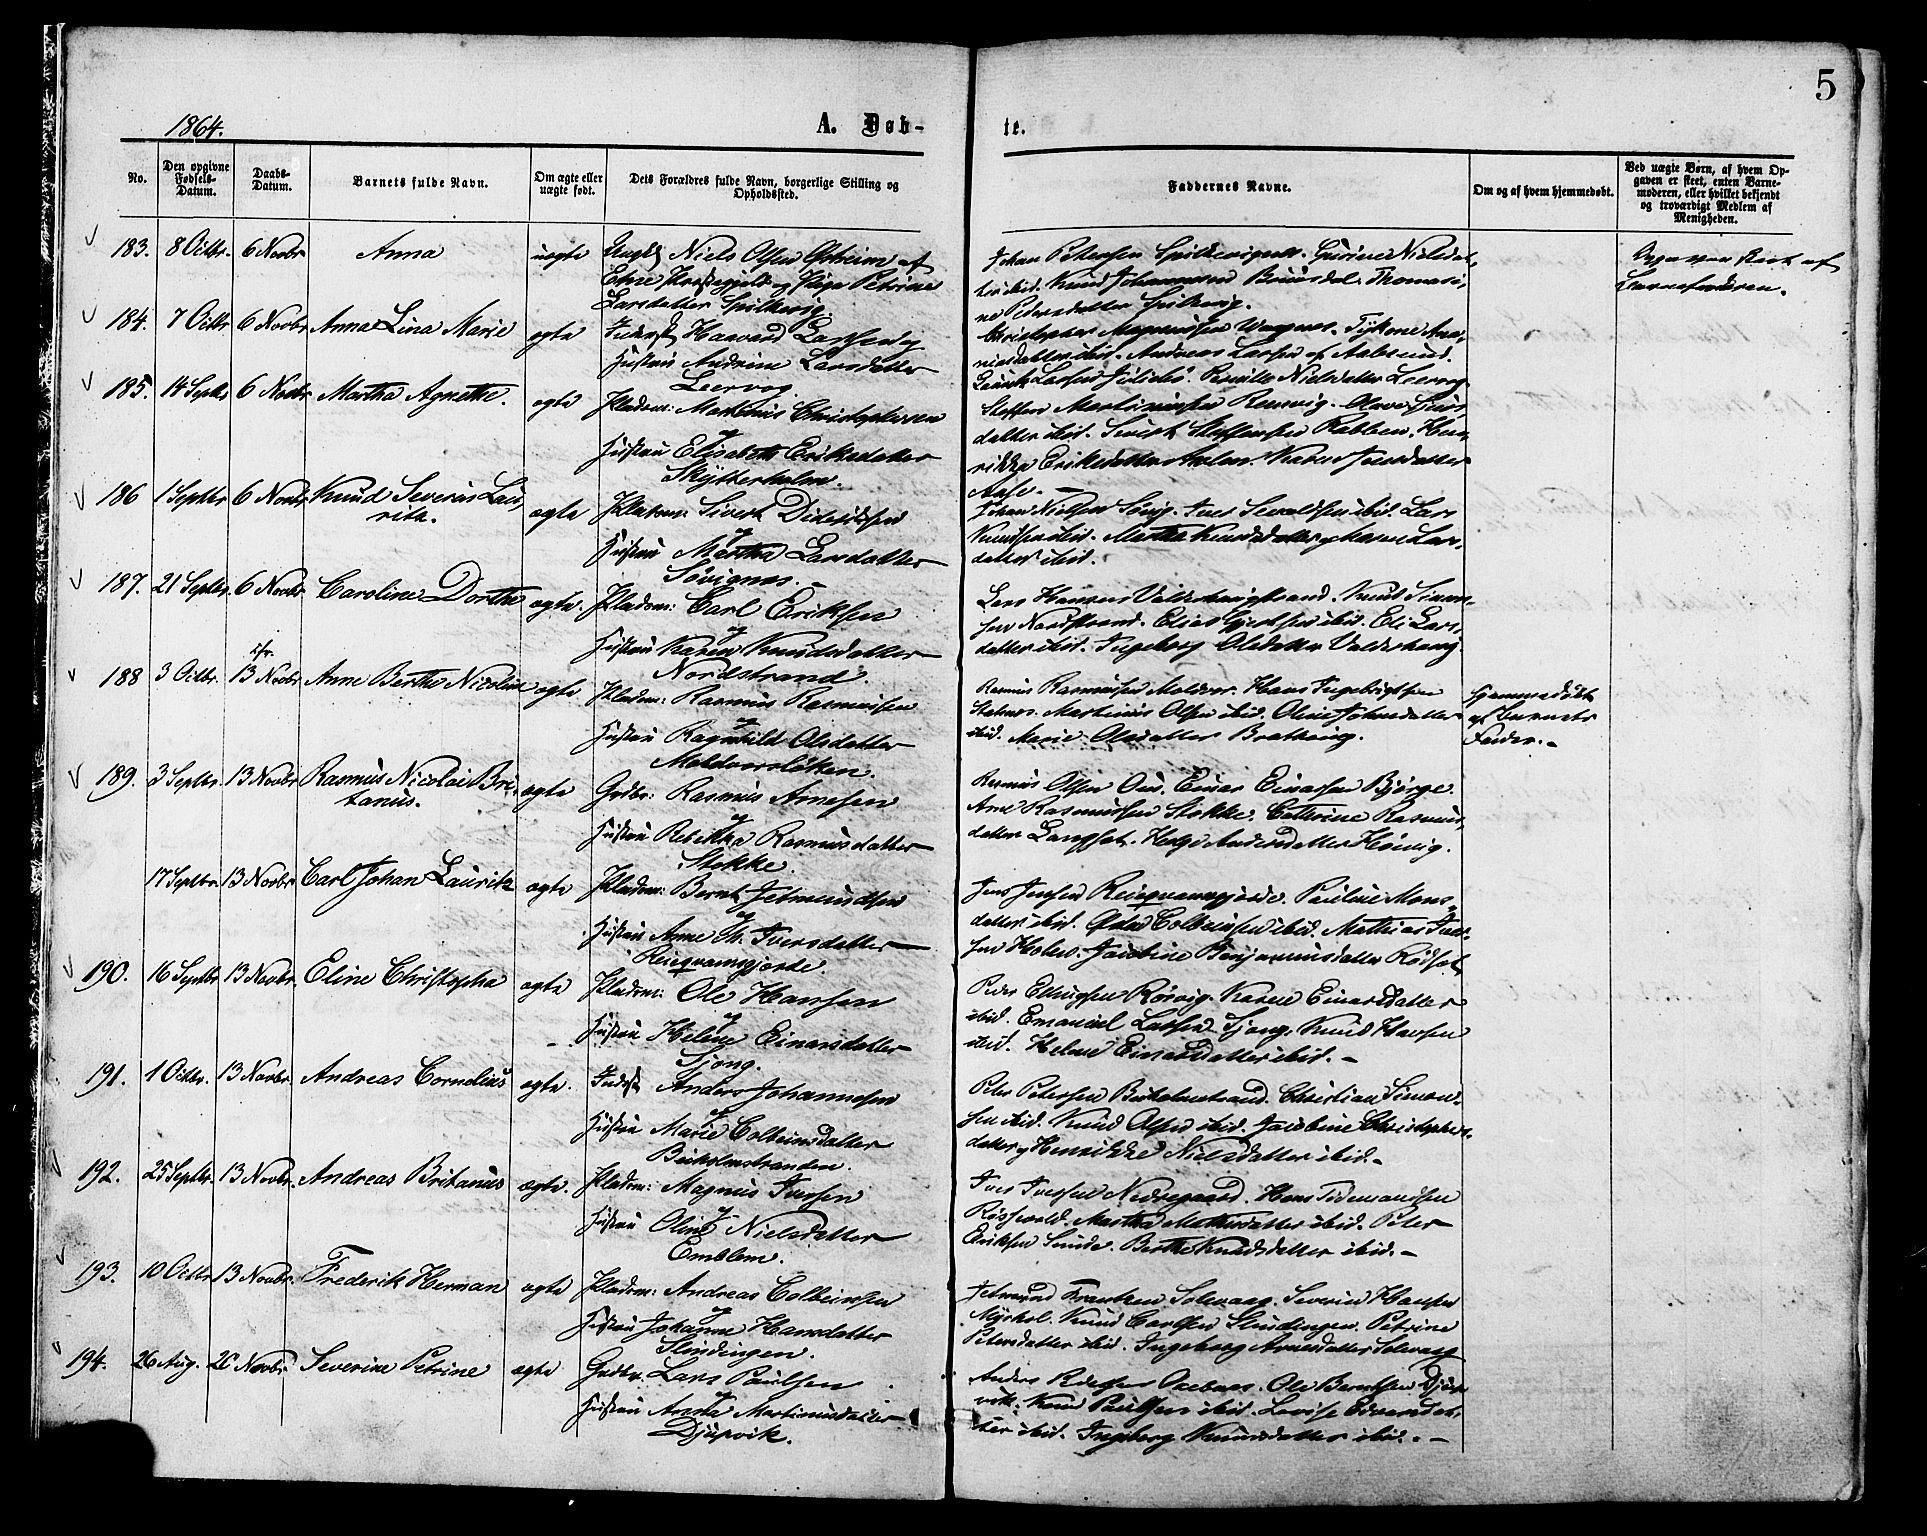 5
1864.
A. Døb-
te.
No.
Den opgivne Fødsels-Datum.
Daabs-Datum.
Barnets fulde Navn.
Om ægte eller uægte født.
Dets Forældres fulde Navn, borgerlige Stilling og Opholdssted.
Faddernes Navne.
Om og af hvem hjemmedøbt.
Ved uægte Børn, af hvem Opgaven er skeet, enten Barnemoderen, eller hvilket bekjendt og troværdigt Medlem af Menigheden.
183. 8 Octbr. 6 Novbr Anna uægte Ungk. Niels Olsen af
Præstegjeld og Pige Petrine
Larsdatter Spilkevig.
Johan Petersen Spilkevignes. Gurine Nielsdat,
ter ibid. Knud Johannesen Brunsdal. Thomasi,
ne Pedersdatter Spilkevig.
af
Barnefaderen.
184. 7 Octbr 6 Novbr Anna Lina Marie ægte Inderst Haavard Larssen og
Hustru Andrine Larsdatter
Leervog
Christopher Magnussen Vegnes.
datter ibid. Andreas Larsen af Aalesund.
Larsen Pernille Nielsdatter Leervog
185. 14 Septbr 6 Novbr Martha Agnethe. ægte Pladsm: Martinus Christophersen
og
Hustru Elisabeth Eriksdatter
Skytterholm.
Steffen Martinussen Olave
datter ibid. Sivert Steffensen Rabben. Hen,
rikke Eriksdatter Karen Jonsdatter
Aase. —
186 1 Septbr 6 Novbr Knud Severin Lau,
ritz.
ægte Pladsm: Sivert Didriksen
og
Hustru Martha Larsdatter
Søvignes. —
Johan Nielsen Søvig. Iver ibid. Lars
Knudsen ibid. Martha Knudsdatter, Maren Lar,
datter ibid.
187. 21 Septbr. 6 Novbr Caroline Dorthe ægte. Pladsm: Carl Eriksen
og
Hustru Karen Knudsdatter
Nordstrand.
Lars Hansen Valderhaugstrand. Knud Simon,
sen Nordstrand. Elias ibid. Eli Lars,
datter ibid. Ingeborg Olsdatter Valderhaug
188 3 Octbr. 13 Novbr Anne Berthe Nicoline ægte Pladsm: Rasmus Rasmussen
og
Hustru Ragnhild Olsdatter
Moldversløken.
Rasmus Rasmussen Moldver. Hans Ingebrigtsen
Martinus Olsen ibid. Oline Johnsdatter
ibid. Marie Olsdatter Brathaug.
Hjemmedøbt
af Barnets
Fader. —
189. 3 Septbr 13 Novbr Rasmus Nicolai Bri,
tanus.
ægte Grdbr: Rasmus Arnesen
og
Hustru Rebekka Rasmusdatter
Stokke.
Rasmus Olsen Einar Einarsen Bjørge.
Arne Rasmussen Stokke. Cathrine Rasmus,
datter Langset. Helge Andersdatter Høivig.
17 Septbr 13 Novbr Carl Johan Lauritz ægte Pladsm: Bernt Jetmundsen
og
Hustru Anne M. Iversdatter
Reieqvamsgjerde.
Jens Jensen Reieqvamsgjerde. Pauline Mons,
datter ibid. Colbeinsen ibid. Mathias Iver,
sen Holen. Jacobine Benjaminsdatter Rødset
190. 16 Septbr 13 Novbr. Eline Christopha ægte Pladsm: Ole Hansen
og
Hustru Helene Einarsdatter
Sjong.
Peder Ellingsen Rørvig. Karen Einarsdatter
ibid. Emanuel Larsen Sjong. Knud Hansen
ibid. Helene Einarsdatter ibid. —
191. 1 Octbr. 13 Novbr. Andreas Cornelius ægte. Inderst Anders Johannesen
og
Hustru Marie Colbeinsdatter
Buholmstranden.
Peter Petersen Buholmstrand. Christian Simon,
sen ibid. Knud Olsen ibid. Jacobine Christophers,
datter, Henrikke Nielsdatter ibid. —
192. 25 Septbr. 13 Novbr. Andreas Britanus ægte. Pladsm: Magnus Iversen
og
Hustru Oline Nielsdatter
Emblem.
Iver Iversen Nedregaard. Hans Tidemandsen
Martha ibid. Peter
Eriksen Sunde. Berthe Knudsdatter ibid. —
193. 10 Octbr 13 Novbr. Frederik Herman ægte Pladsm: Andreas Colbeinsen
og
Hustru Johanne Hansdatter
Slindingen.
Jetmund Frantzen Solevaag. Severin Hansen
Knud Carlsen Slindingen. Petrine
Petersdatter ibid. Ingeborg Arnesdatter Solevaag
194. 26 Aug. 20 Novbr Severine Petrine ægte Grdbr. Lars Paulsen
og
Hustru Anna Martinusdatter
Djupvik.
Anders Ole Berntsen Djup,
vik. Knud Paulsen ibid. Lovise Edvardsdat,
ter ibid. Ingeborg Knudsdatter ibid. —